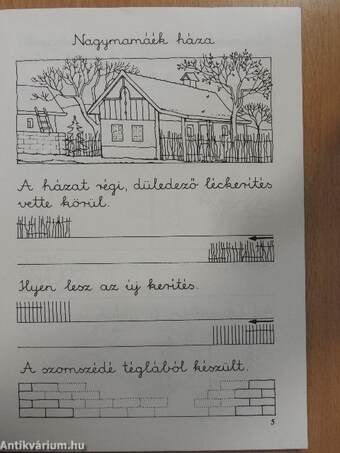 Nagymamáék háza
A házat régi, düledező léckerítés
vette körül.
Ilyen lesz az új kerítés.
A szomszédé téglából készült.
5
Antikvárium.hu